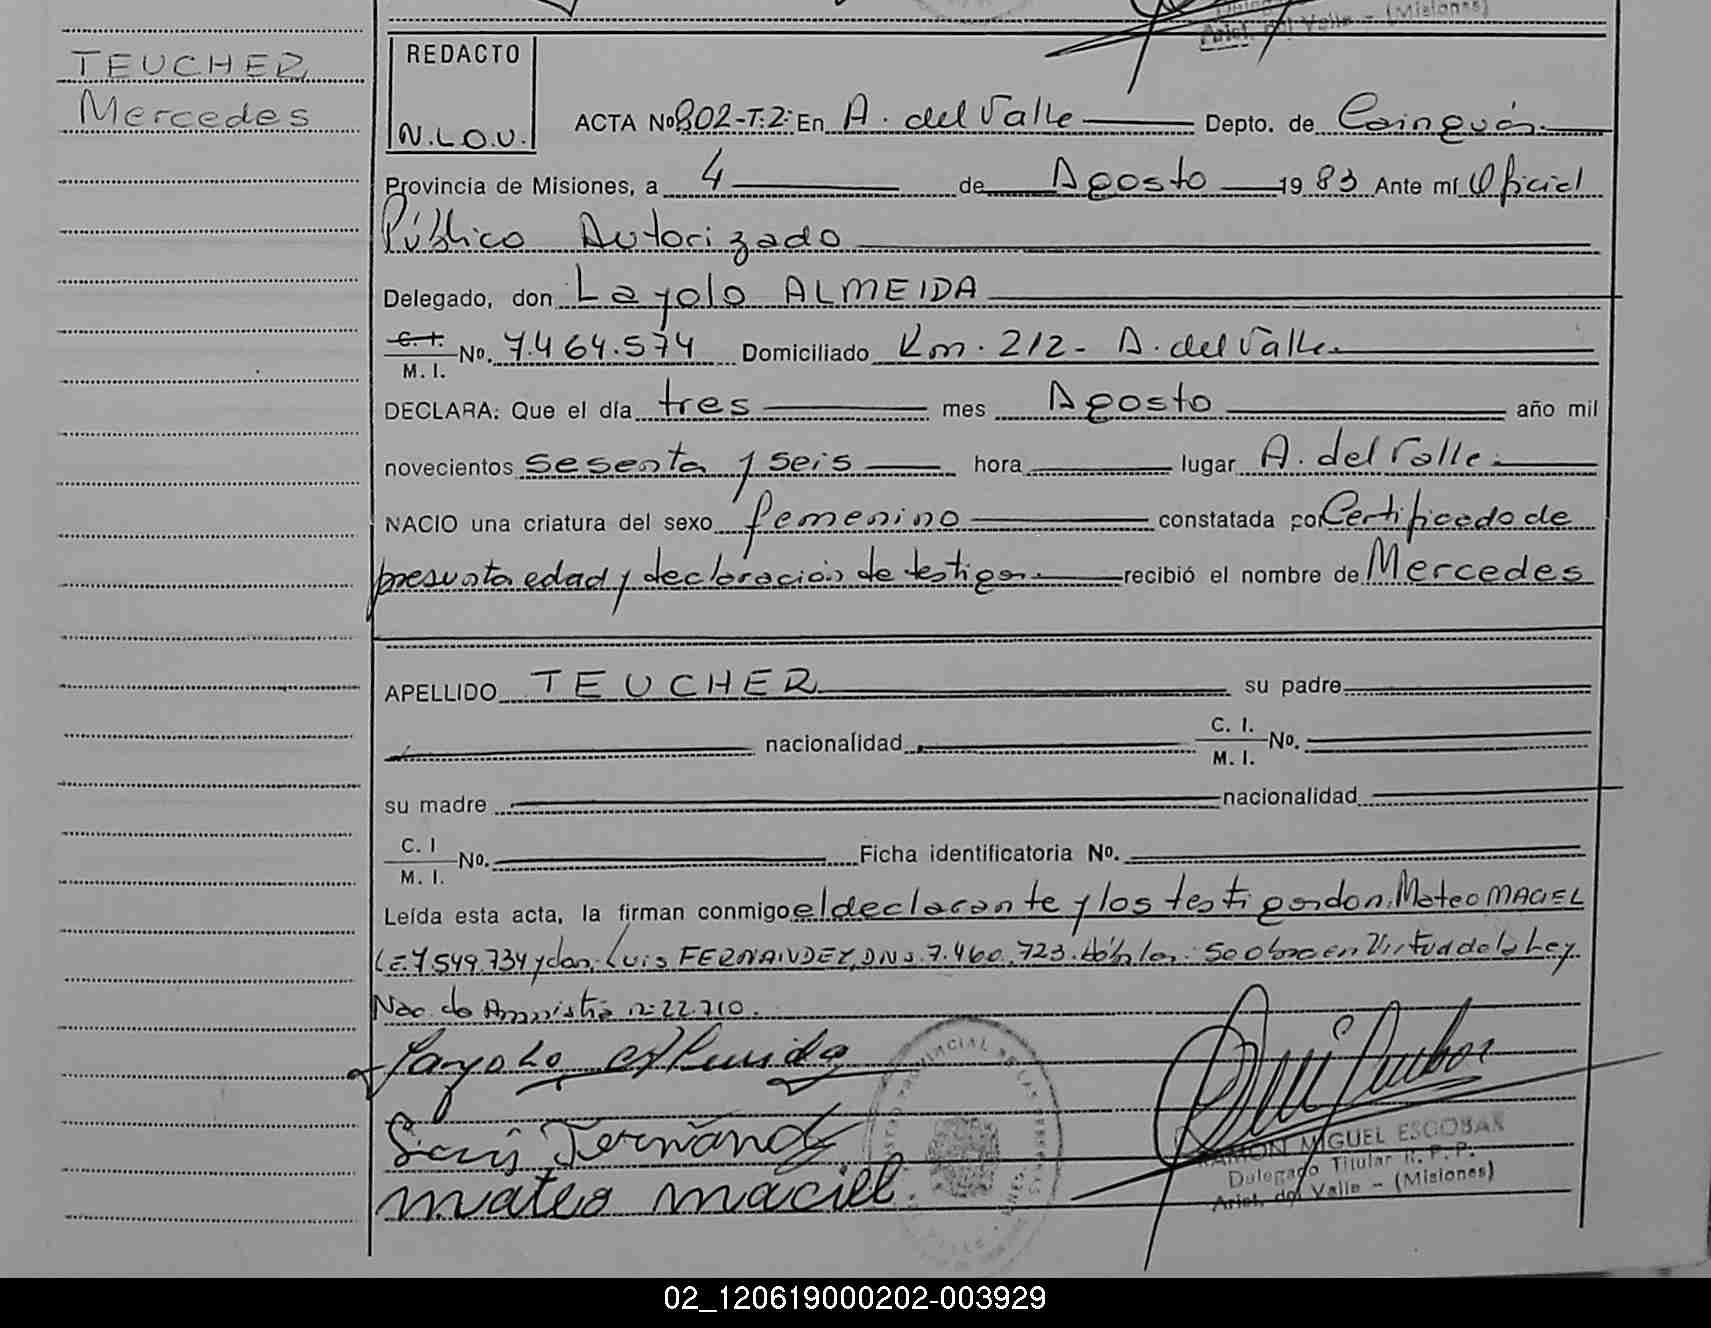 Ariel. del Valle - (Misiones)
TEUCHER
Mercedes
REDACTO
N.L.O.V.
ACTA Nº 802-T:2: En A. del Valle Depto. de Cainguás.
Provincia de Misiones, a 4 de Agosto 1983 Ante mí Oficial
Público Autorizado
Delegado, don Layolo ALMEIDA
C. I. M. I. No. 7.464.574 Domiciliado Km. 212- A. del Valle.
DECLARA: Que el día tres mes Agosto año mil
novecientos sesenta y seis hora lugar A. del Valle.
NACIO una criatura del sexo femenino constatada por Certificado de
presunta edad y declaración de testigos. recibió el nombre de Mercedes
APELLIDO TEUCHER su padre
nacionalidad C. I. M. I. No.
su madre nacionalidad
C. I M. I. No. Ficha identificatoria No.
Leída esta acta, la firman conmigo el declarante y los testigos don: Mateo MACIEL
L.E. 7.549.734 y don: Luis FERNANDEZ, DNI. 7.460.723. hábiles. Se obra en Virtud de la Ley
Nac. de Amnistía nº 22.710.
Layolo Almeida
Luis Fernandez
mateo maciel
RAMON MIGUEL ESCOBAR
Delegado Titular R. P. P.
Arist. del Valle - (Misiones)
02_120619000202-003929